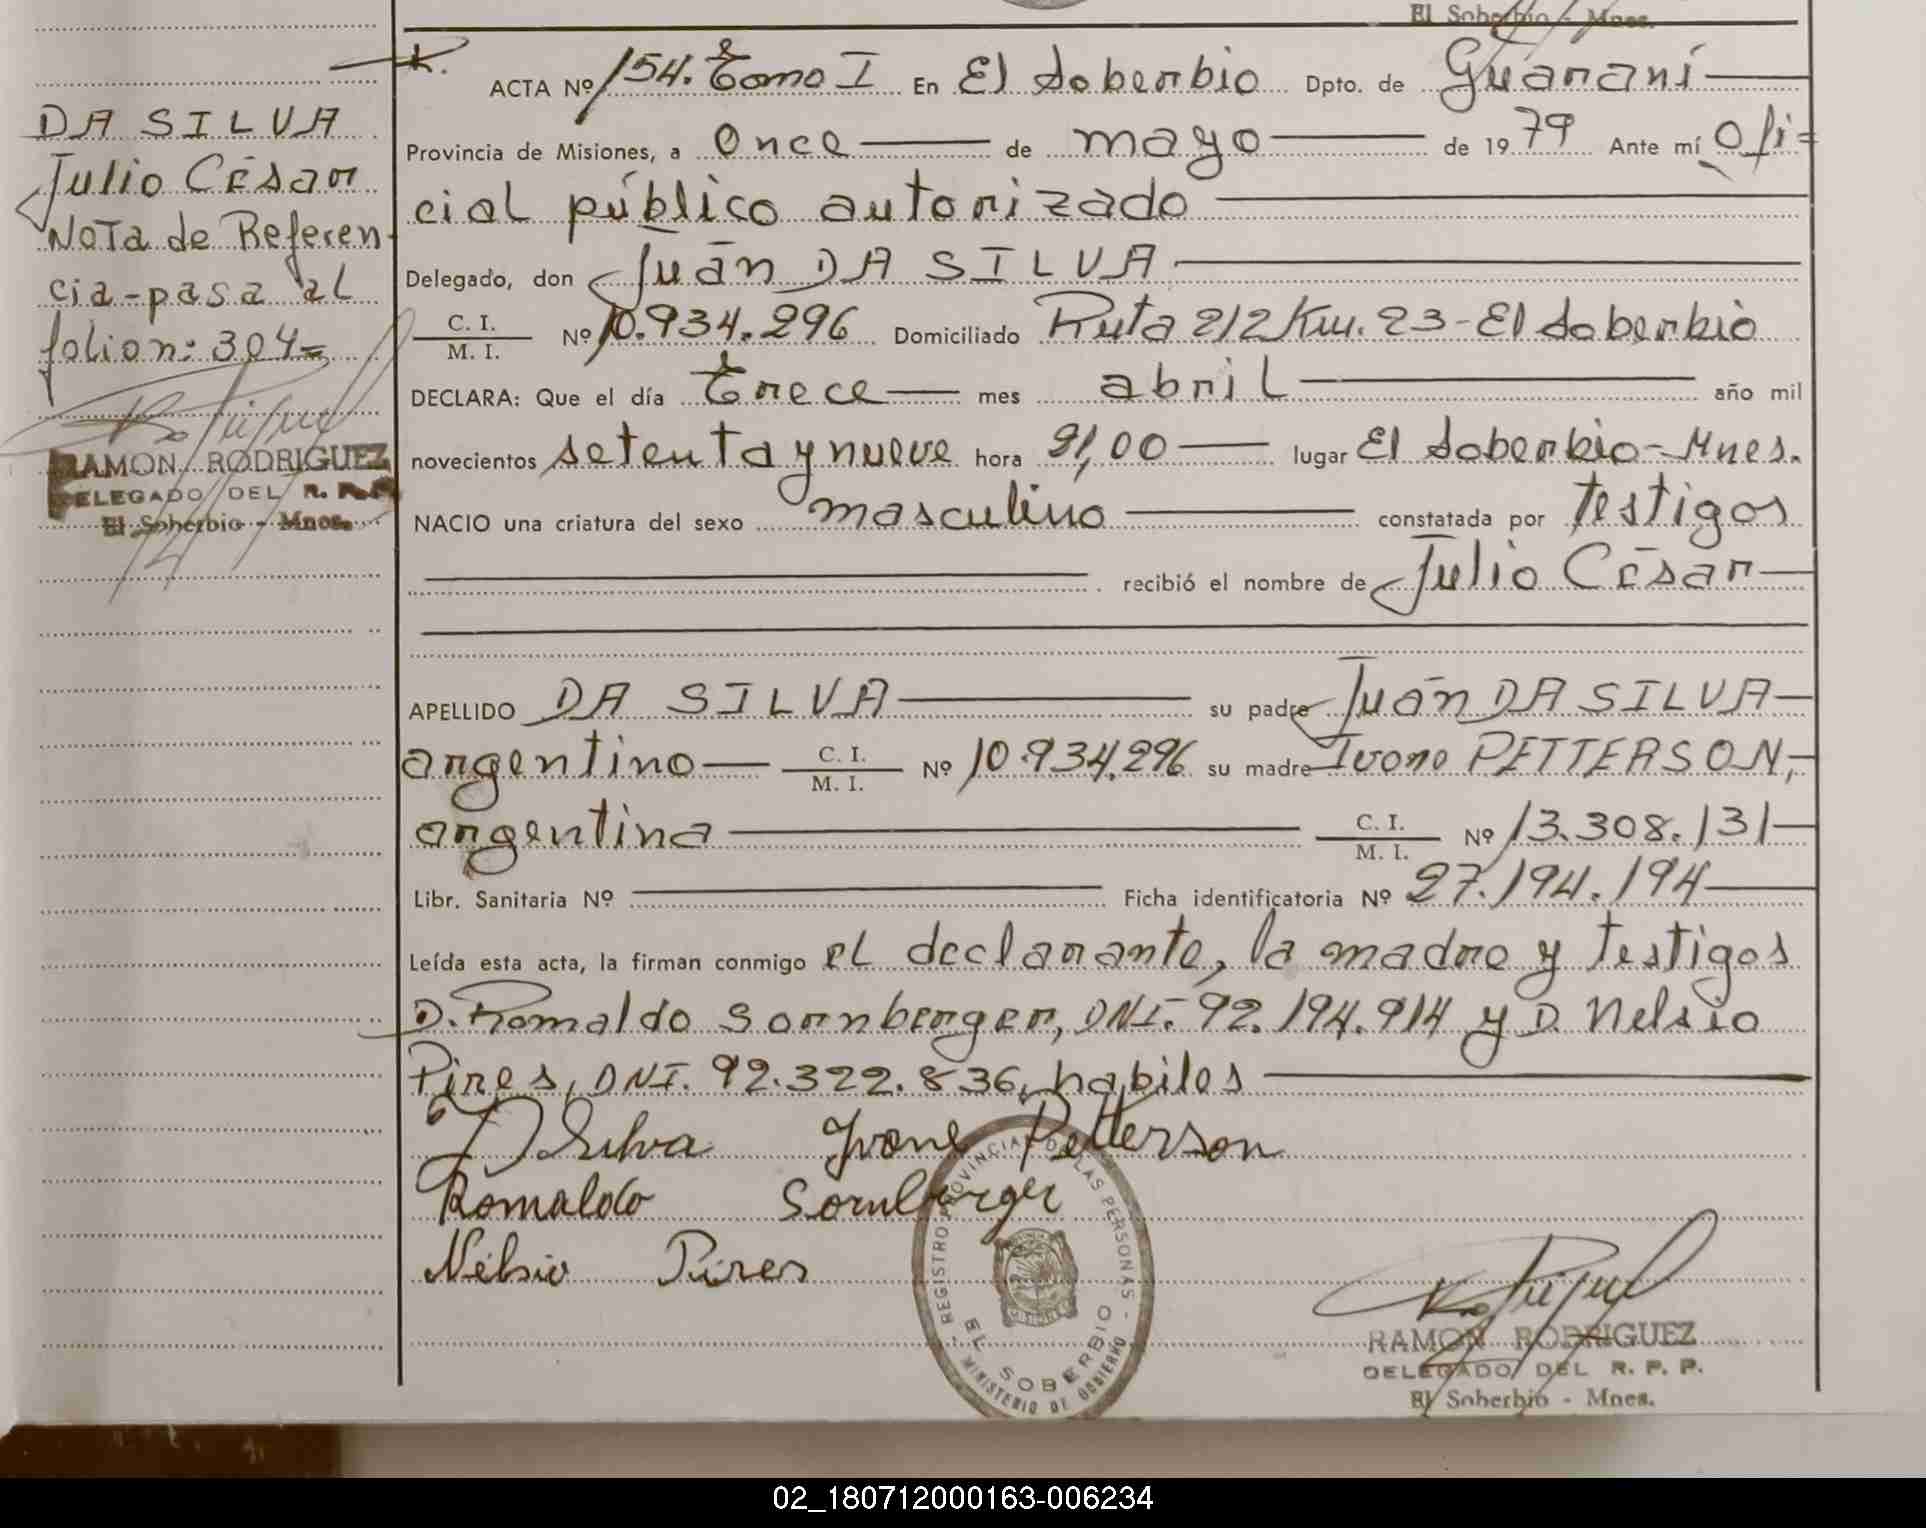 El Soberbio - Mnes.
DA SILVA
Julio César
Nota de Referen-
cia-pasa al
folio n: 304=
RAMON RODRIGUEZ
DELEGADO DEL R. P. P.
El Soberbio - Mnes.
ACTA Nº 154. Tomo I En El Soberbio Dpto. de Guaraní
Provincia de Misiones, a once de mayo de 1979 Ante mí Ofi=
cial público autorizado
Delegado, don Juan DA SILVA
C. I.
M. I.
Nº 10.934.296 Domiciliado Ruta 212 Km. 23-El Soberbio
DECLARA: Que el día trece mes abril año mil
novecientos setenta y nueve hora 21,00 lugar El Soberbio-Mnes.
NACIO una criatura del sexo masculino constatada por testigos
recibió el nombre de Julio César
APELLIDO DA SILVA su padre Juan DA SILVA
argentino C. I.
M. I.
Nº 10.934.296 su madre Ivone PETTERSON,
argentina C. I.
M. I.
Nº 13.308.131
Libr. Sanitaria Nº Ficha identificatoria Nº 27.194.194
Leída esta acta, la firman conmigo el declarante, la madre y testigos
D. Romaldo Sornberger, DNI. 92.194.914 y D. Nelsio
Pires, DNI. 92.322.836, habiles
J D Silva Ivone Petterson
Romaldo Sornberger
Nélsio Pires
REGISTRO PROVINCIAL DE LAS PERSONAS
EL SOBERBIO
MINISTERIO DE GOBIERNO
RAMON RODRIGUEZ
DELEGADO DEL R. P. P.
El Soberbio - Mnes.
02_180712000163-006234